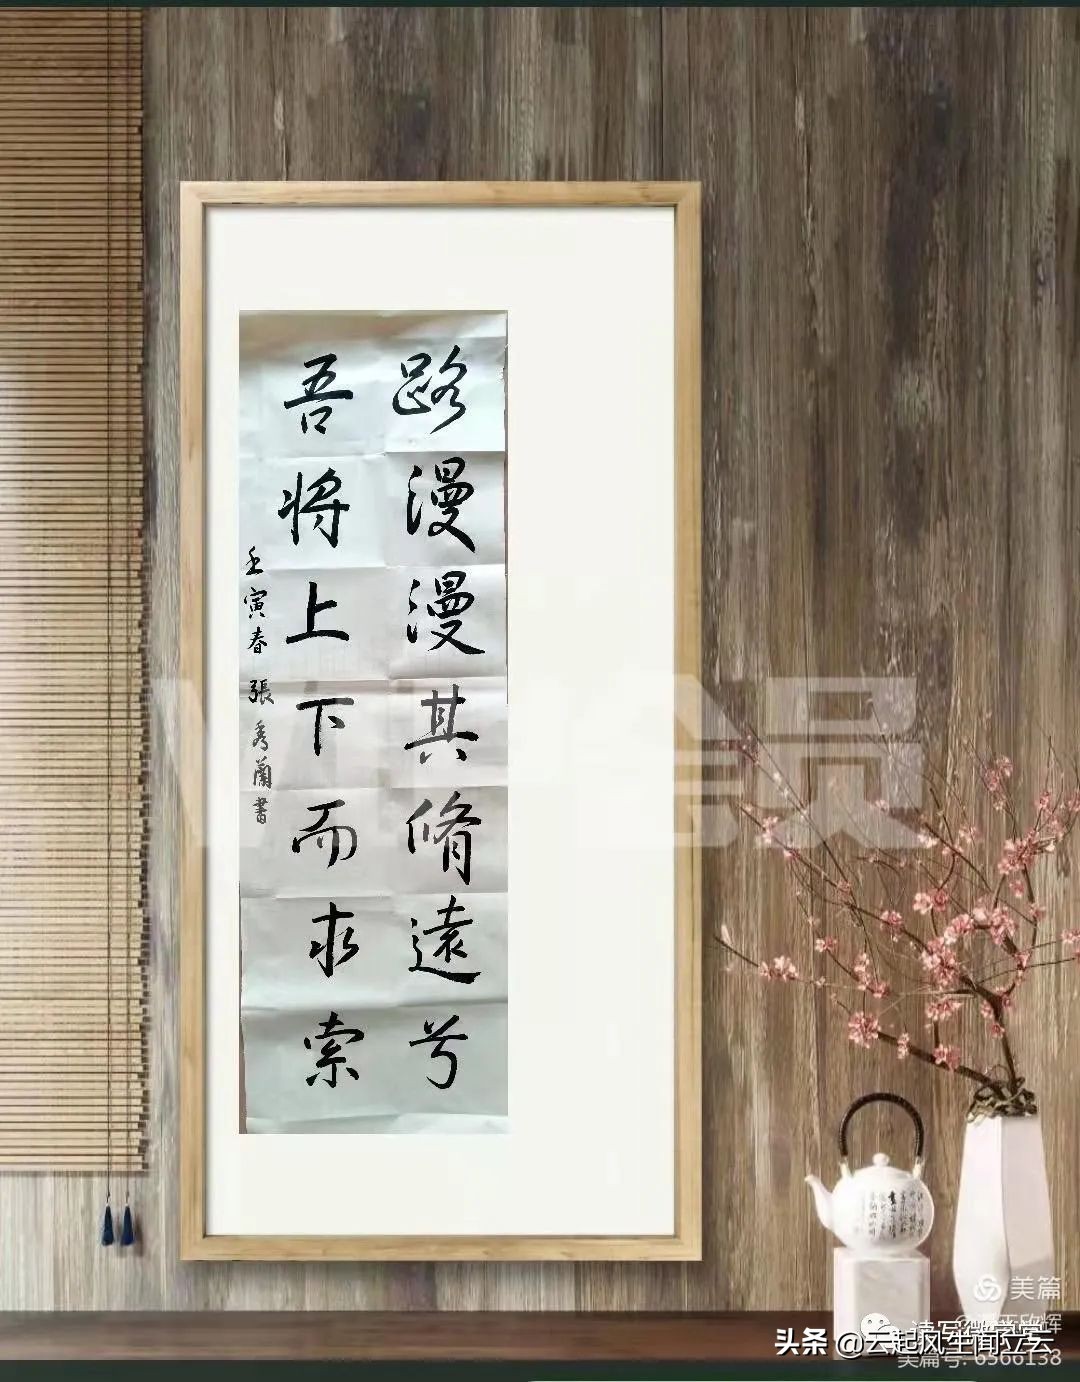 路漫漫其脩遠兮
吾将上下而求索
壬寅春 張秀蘭書
会员
美篇
头条 @云起风生闻立云
美篇号: 6566138